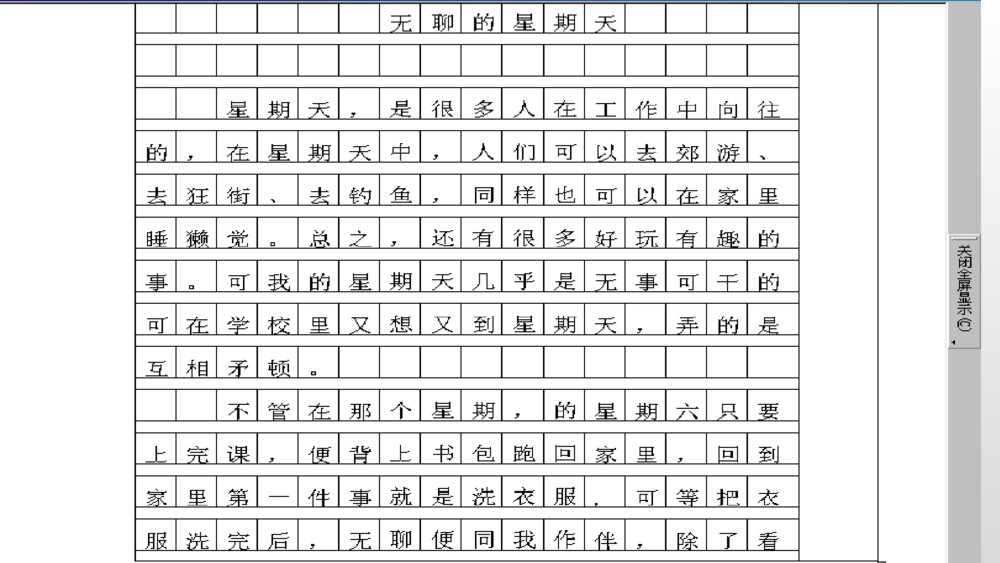 无聊的星期天
星期天，是很多人在工作中向往
的，在星期天中，人们可以去郊游、
去狂街、去钓鱼，同样也可以在家里
睡獭觉。总之，还有很多好玩有趣的
事。可我的星期天几乎是无事可干的
可在学校里又想又到星期天，弄的是
互相矛顿。
不管在那个星期，的星期六只要
上完课，便背上书包跑回家里，回到
家里第一件事就是洗衣服．可等把衣
服洗完后，无聊便同我作伴，除了看
关闭全屏显示(C)